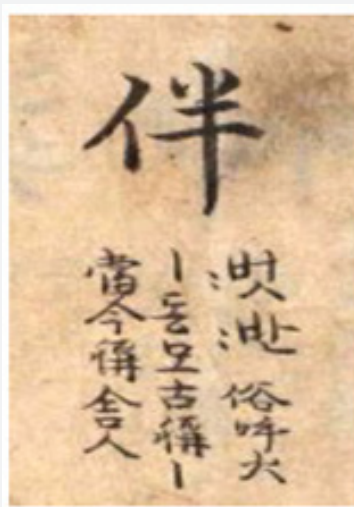 伴
:벗:반 俗呼火
丨동모古稱丨
當今稱舍人